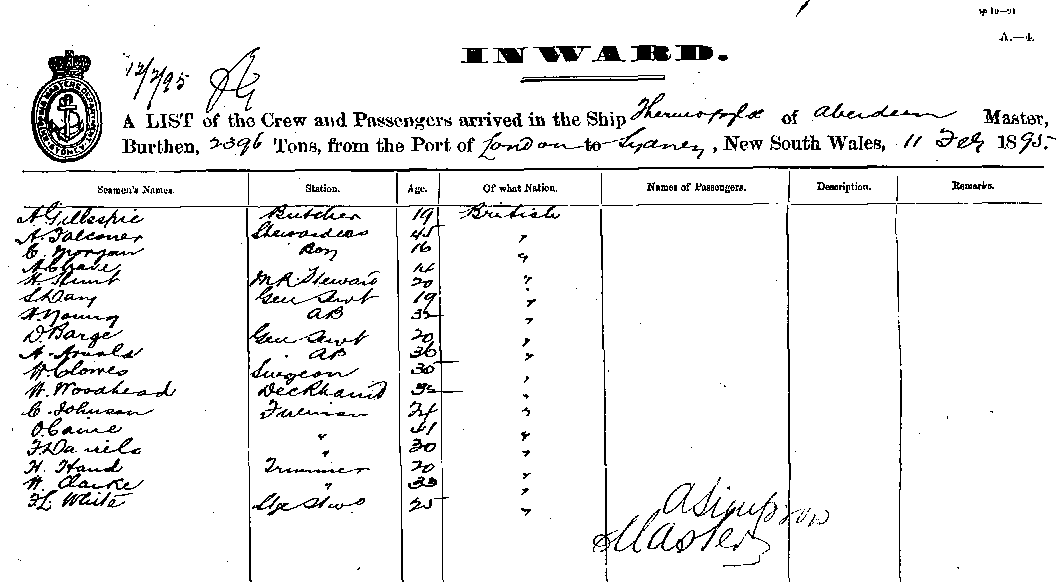 A.—4.
12/2/95
INWARD.
A LIST of the Crew and Passengers arrived in the Ship Thermopylæ of Aberdeen Master,
Burthen, 2396 Tons, from the Port of London to Sydney, New South Wales, 11 Feb 1895.
Seamen's Names. Station. Age. Of what Nation. Names of Passengers. Description. Remarks.
A Gillespie Butcher 19 British
A. Falconer Stewardess 45 "
C. Morgan Boy 16 "
A 14
H. Hunt M.R. Steward 20 "
S Day Gen Servt 19 "
H. Young AB "
D. Barge Gen Servt 20 "
A. AB 36 "
H. Clowes Surgeon 30 "
H. Woodhead Deckhand "
C. Johnson Fireman 24 "
O. Caine " 41 "
F. Daniels " 30 "
H. Hand Trimmer 20 "
H. Clarke " "
F.L. White 25 "
A Simpson
Master